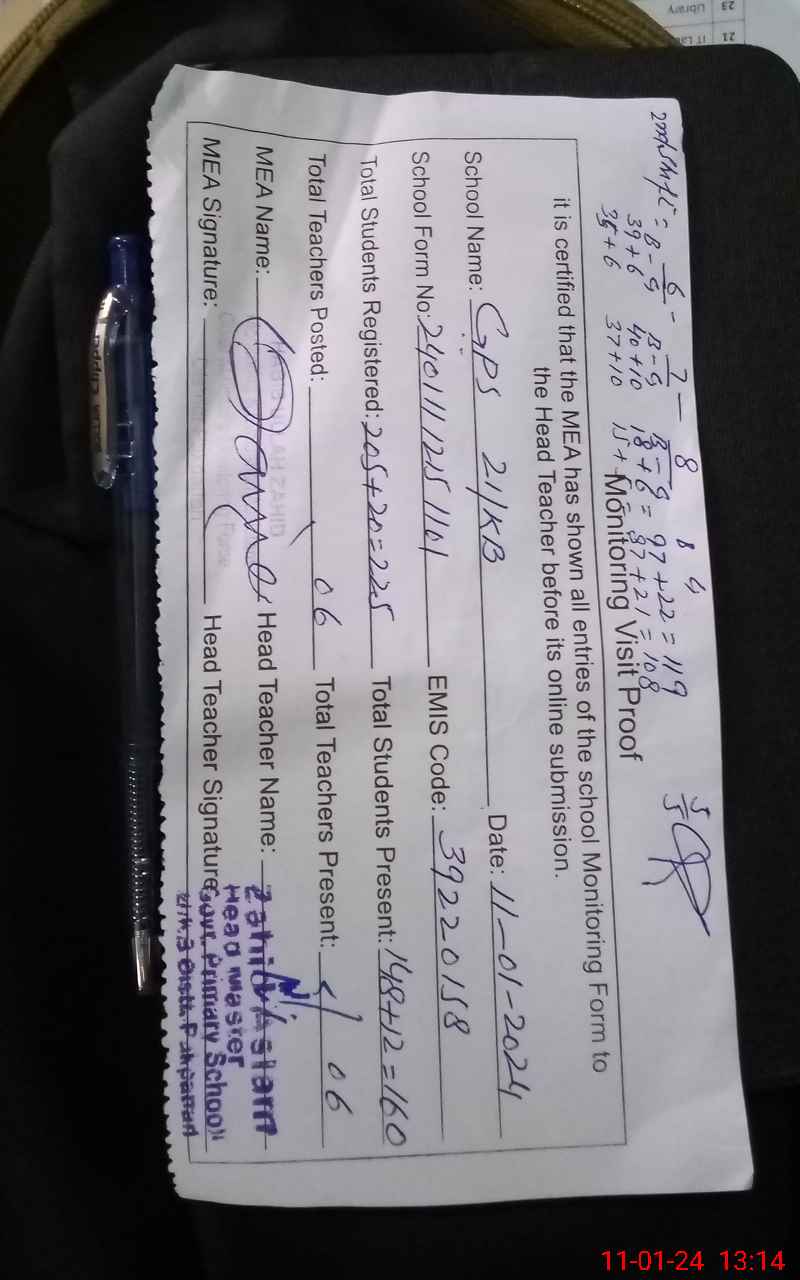 6 - 7 - 8
B-G B-G B-G
39+6 40+10 18+6 = 97+22 = 119
37+10 = 97+21 = 108
5/5
Monitoring Visit Proof
it is certified that the MEA has shown all entries of the school Monitoring Form to
the Head Teacher before its online submission.
School Name: GPS 21/KB Date: 11-01-2024
School Form No: EMIS Code: 39220158
Total Students Registered: 205+20=225 Total Students Present: 148+12=160
Total Teachers Posted: 06 Total Teachers Present: 06
MEA Name: Head Teacher Name: Zahid Aslam
Head Master
MEA Signature: Head Teacher Signature: Govt. Primary School
21/K.B Distt. Pakpattan
23 Library
21 IT Lab
11-01-24 13:14